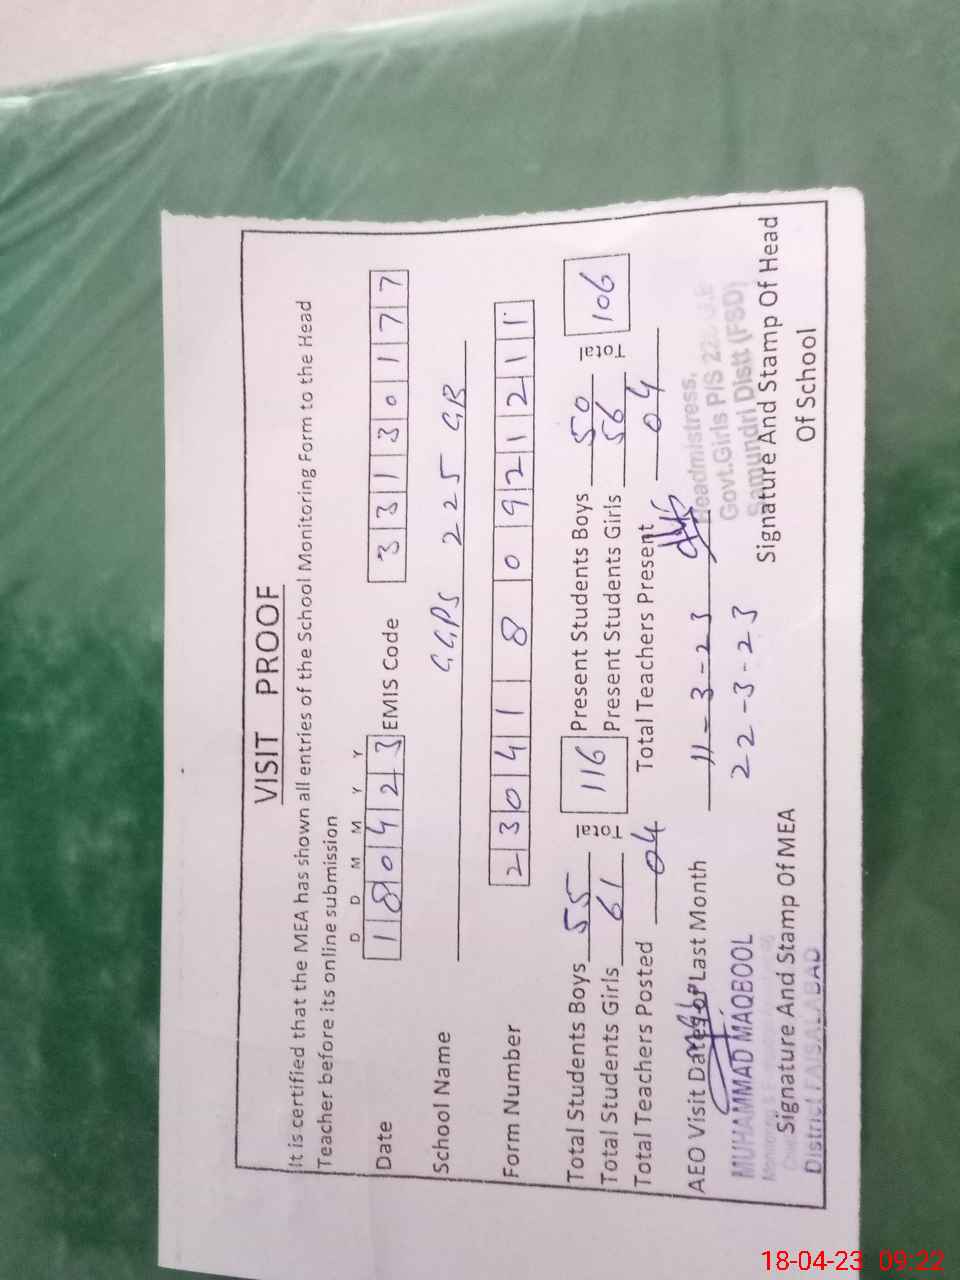 VISIT PROOF
It is certified that the MEA has shown all entries of the School Monitoring Form to the Head
Teacher before its online submission
D D M M Y Y
Date 1 8 0 4 2 3 EMIS Code 3 3 1 3 0 1 7 7
School Name GGPS 225 GB
Form Number 2 3 0 4 1 8 0 9 2 1 2 1 1
Total Students Boys 55 Total 116 Present Students Boys 50 Total 106
Total Students Girls 61 Present Students Girls 56
Total Teachers Posted 04 Total Teachers Present 04
AEO Visit Dates of Last Month 11-3-23
22-3-23
MUHAMMAD MAQBOOL
District FAISALABAD
Signature And Stamp Of MEA
Headmistress,
Govt.Girls P/S
Samundri Distt (FSD)
Signature And Stamp Of Head
Of School
18-04-23 09:22